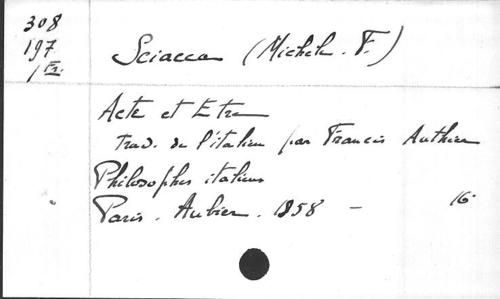 308
197
1 Fr.
Sciacca (Michele. F.)
Acte et Etre
trad. de l'italien par Francis Authier
Philosophes italiens
Paris. Aubier. 1958 — 16